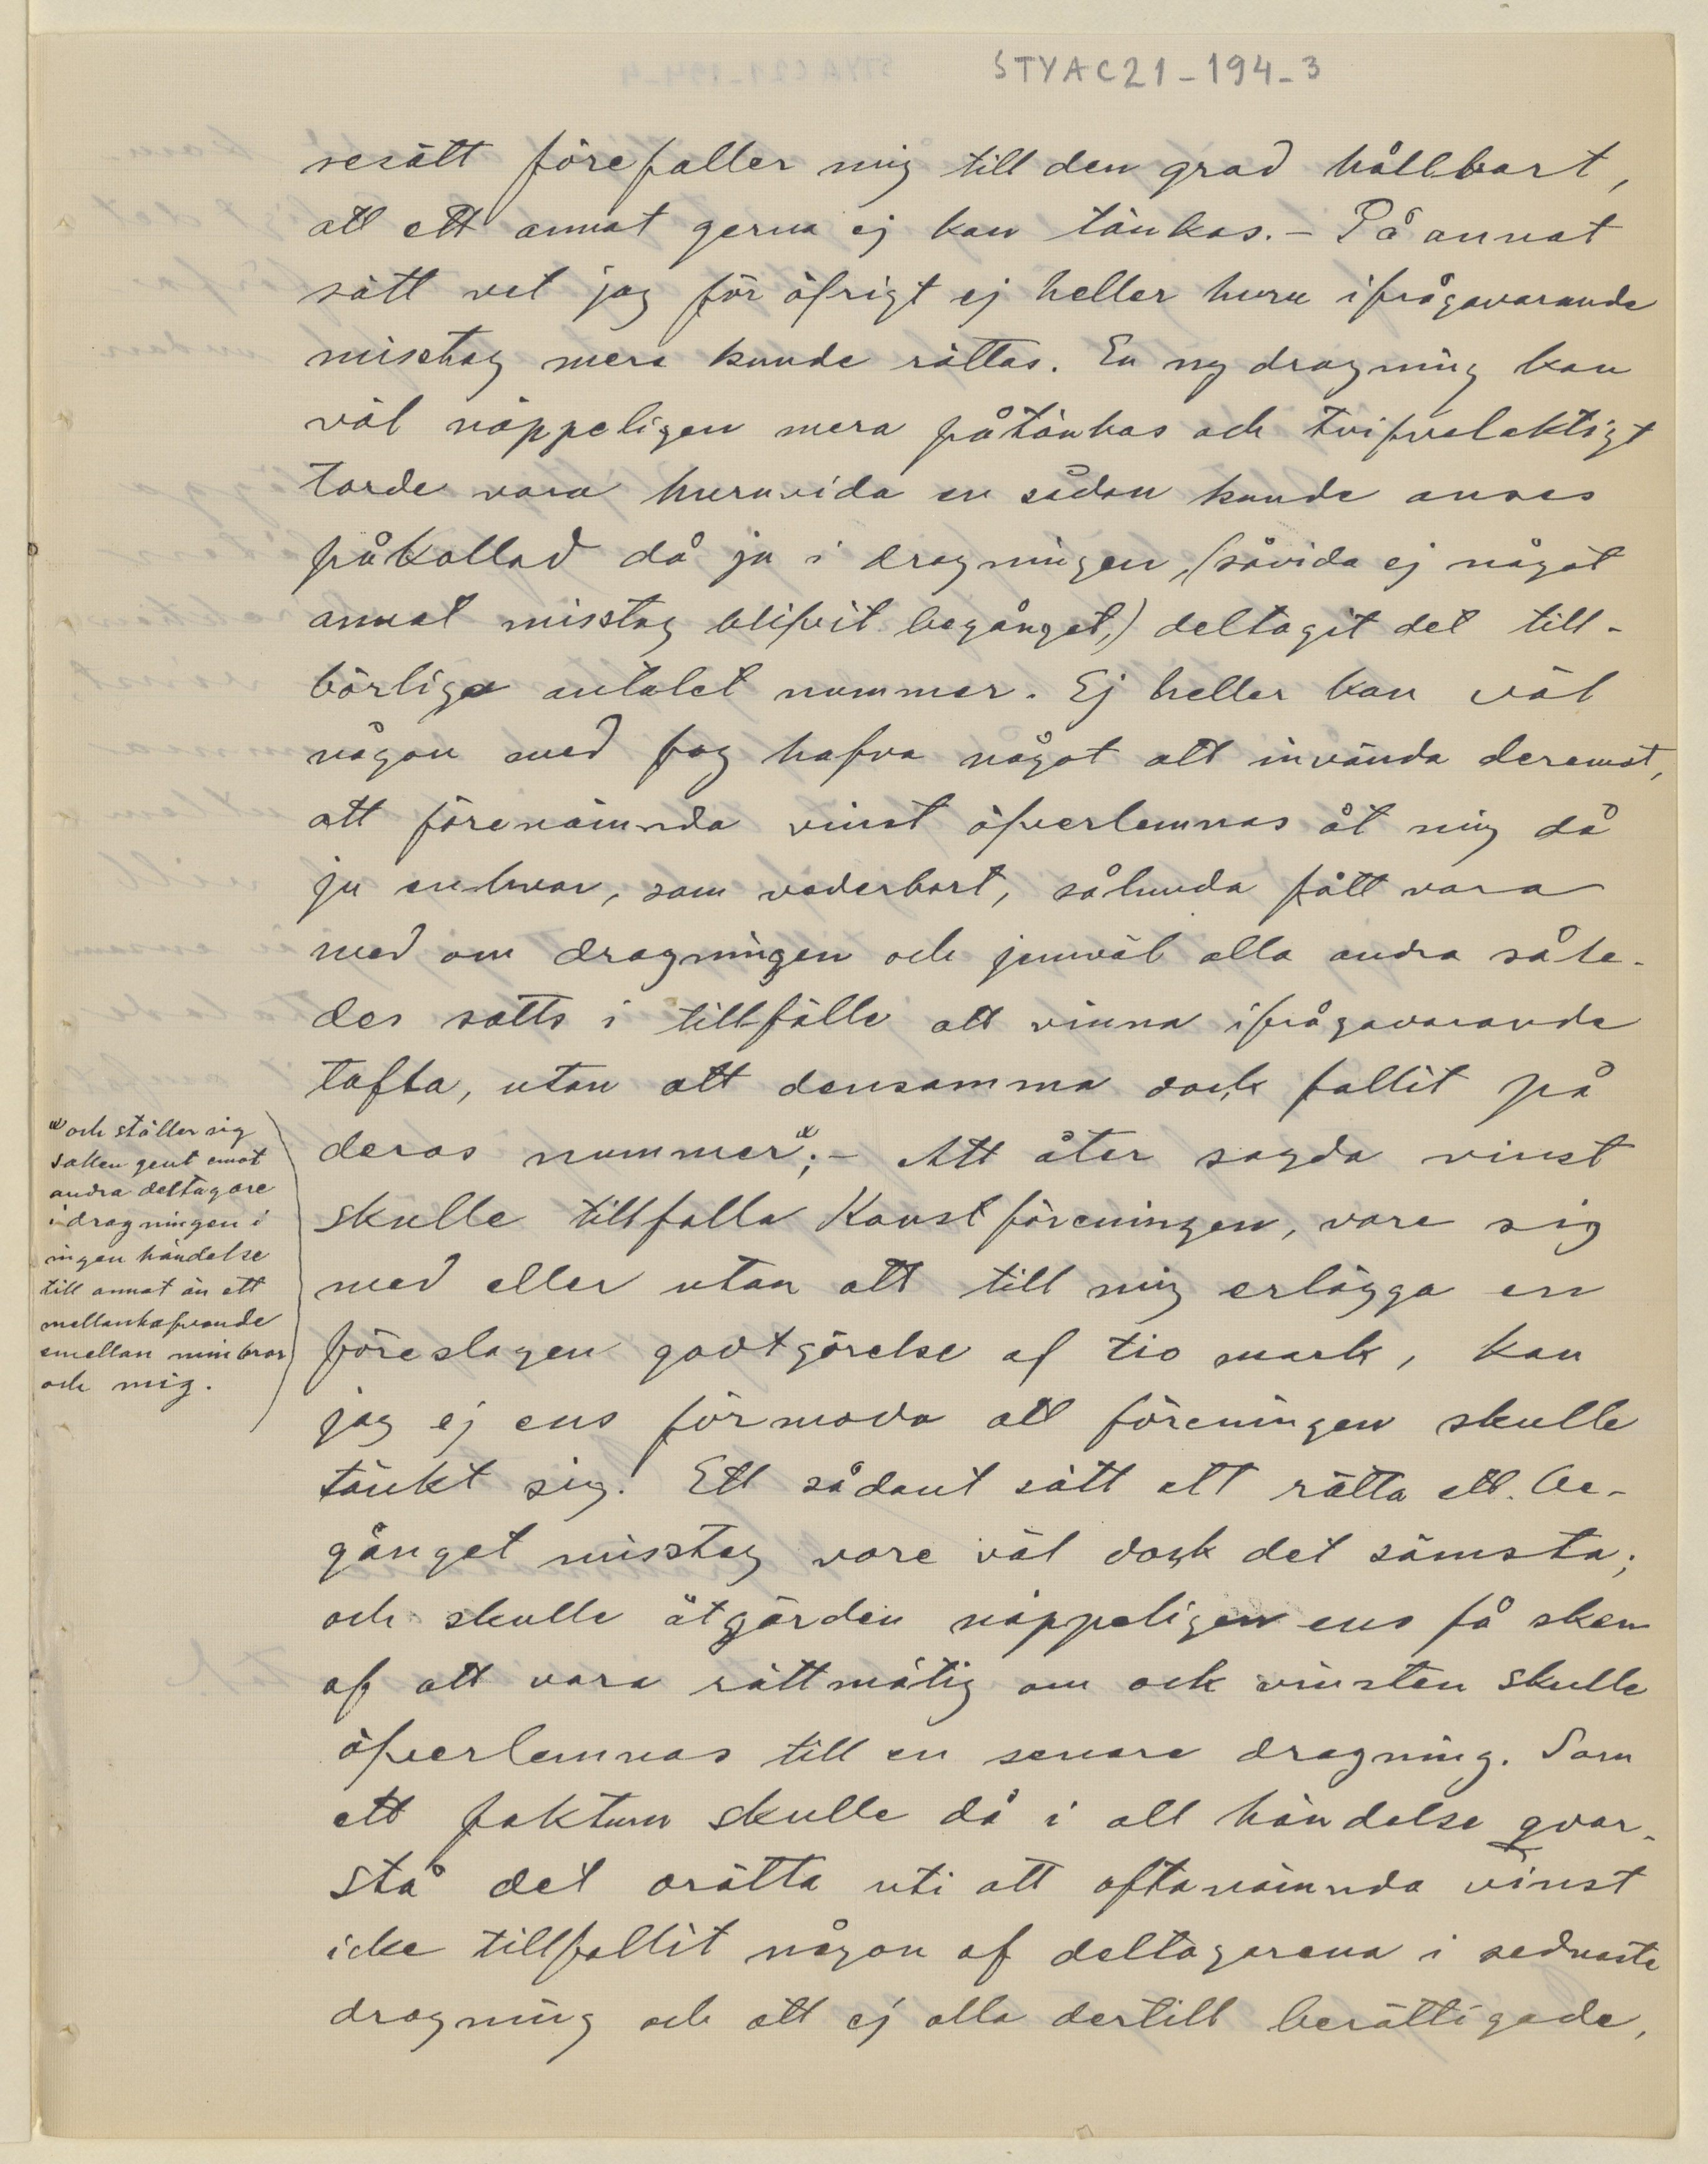 STYAC21-194-3
sesätt förefaller mig till den grad hållbart,
att ett annat gerna ej kan tänkas. – På annat
sätt vet jag för öfrigt ej heller huru ifrågavarande
misstag mera kunde rättas. En ny dragning kan
väl näppeligen mera påtänkas och tvifvelaktigt
torde vara huruvida en sådan kunde anses
påkallad då ju i dragningen, (såvida ej något
annat misstag blifvit begånget,) deltagit det till-
börliga antalet nummer. Ej heller kan väl
någon med fog hafva något att invända deremot,
att förenämnda vinst öfverlemnas åt mig då
ju enhvar, som vederbort, sålunda fått vara
med om dragningen och jemväl alla andra såle-
des satts i tillfälle att vinna ifrågavarande
tafla, utan att densamma dock fallit på
deras nummer; – Att åter sagda vinst
skulle tillfalla Konstföreningen, vare sig
med eller utan att till mig erlägga en
föreslagen godtgörelse af tio mark, kan
jag ej ens förmoda att föreningen skulle
tänkt sig! Ett sådant sätt att rätta ett be-
gånget misstag vore väl dock det sämsta;
och skulle åtgärden näppeligen ens få sken
af att vara rättmätig om ock vinsten skulle
öfverlemnas till en senare dragning. Som
ett faktum skulle då i all händelse qvar-
stå det orätta uti att oftanämnda vinst
icke tillfallit någon af deltagarena i sednaste
dragning och att ej alla dertill berättigade,
och ställer sig
saken gent emot
andra deltagare
i dragningen i
ingen händelse
till annat än ett
mellanhafvande
emellan min bror
och mig.